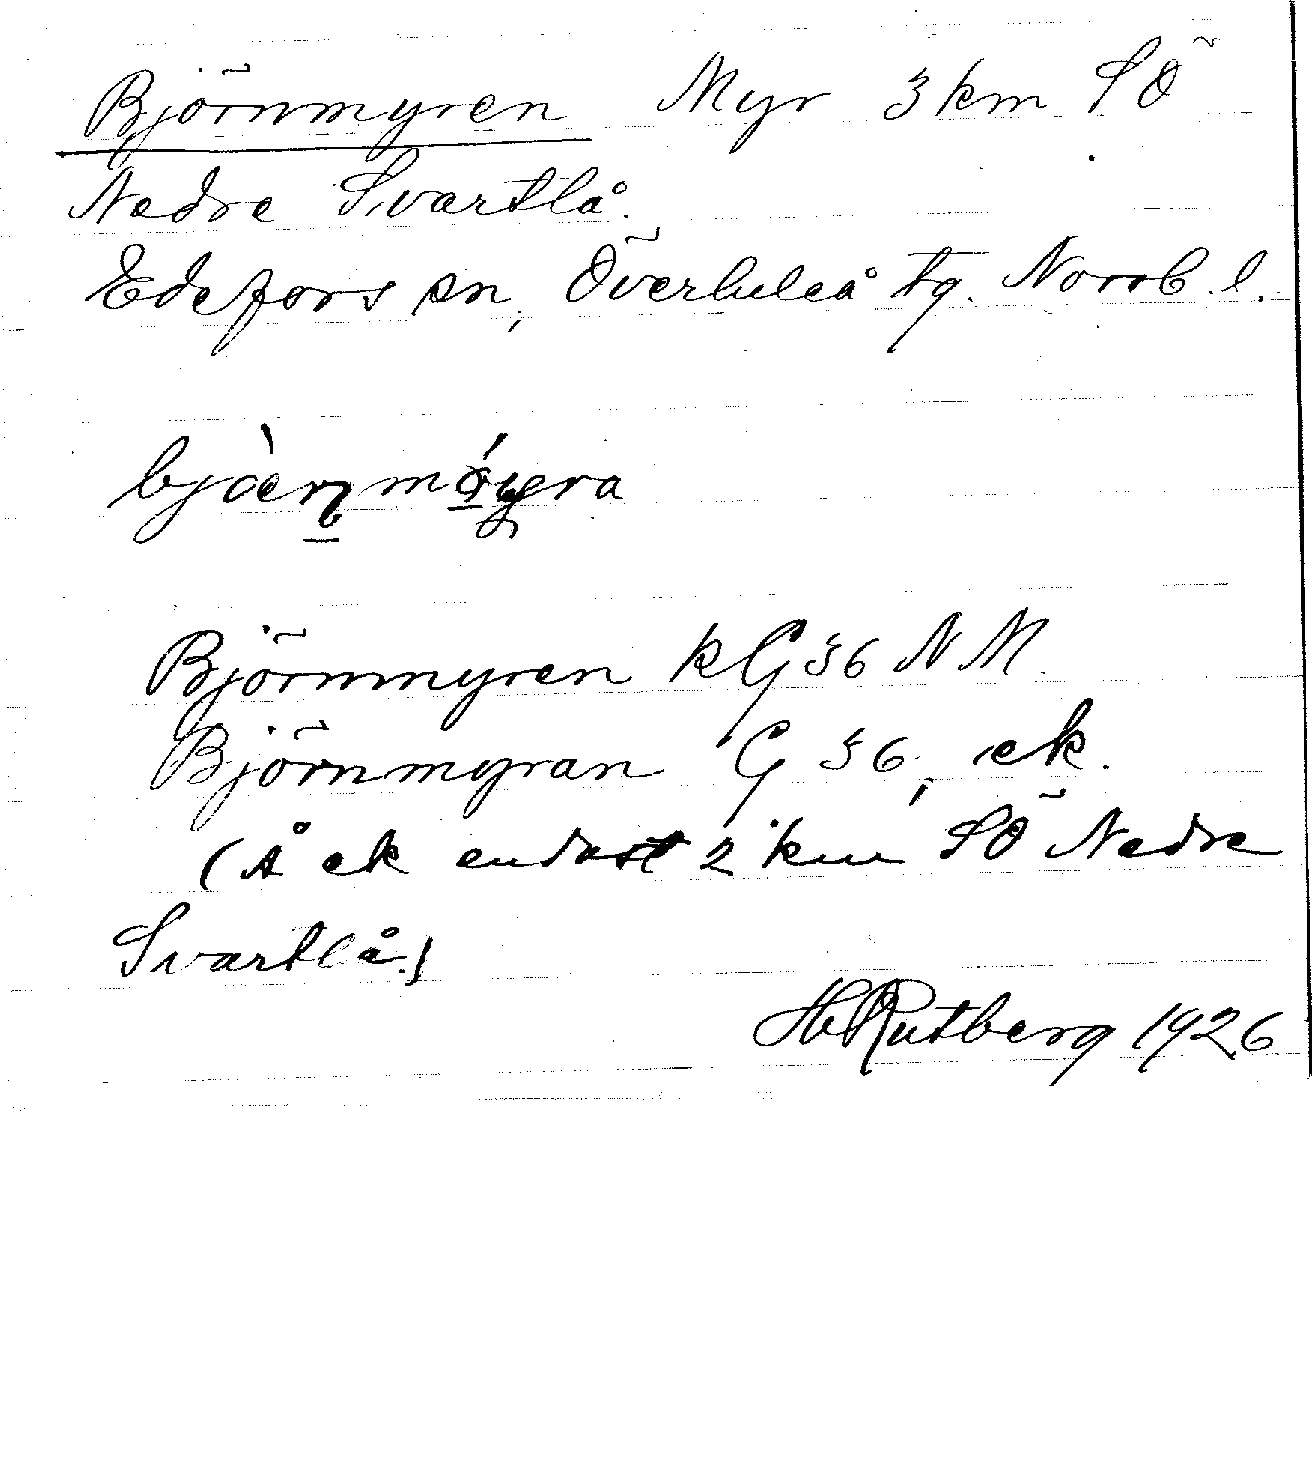 Björnmyren Myr 3 km SÖ
Nedre Svartlå.
Edefors sn, Överluleå tg. Norrb. l.
Björnmyren kG 36 NM
Björnmyran G 36, ek.
(Å ek endast 2 km SÖ Nedre
Svartlå.)
H Rutberg 1926